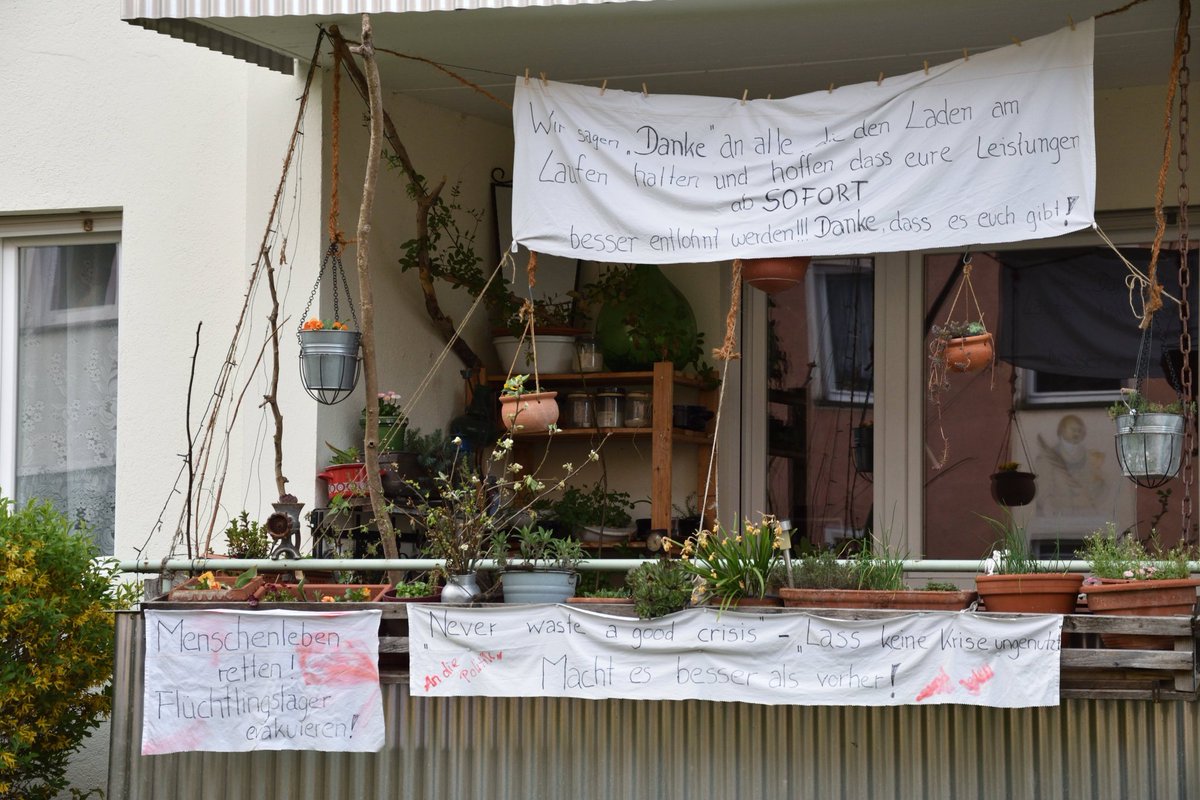 Wir sagen „Danke" an alle, die den Laden am
Laufen halten und hoffen dass eure Leistungen
ab SOFORT
besser entlohnt werden!!! Danke, dass es euch gibt!
Menschenleben
retten!
Flüchtlingslager
evakuieren!
„Never waste a good crisis" - „Lass keine Krise ungenutzt
An die Politik
Macht es besser als vorher!